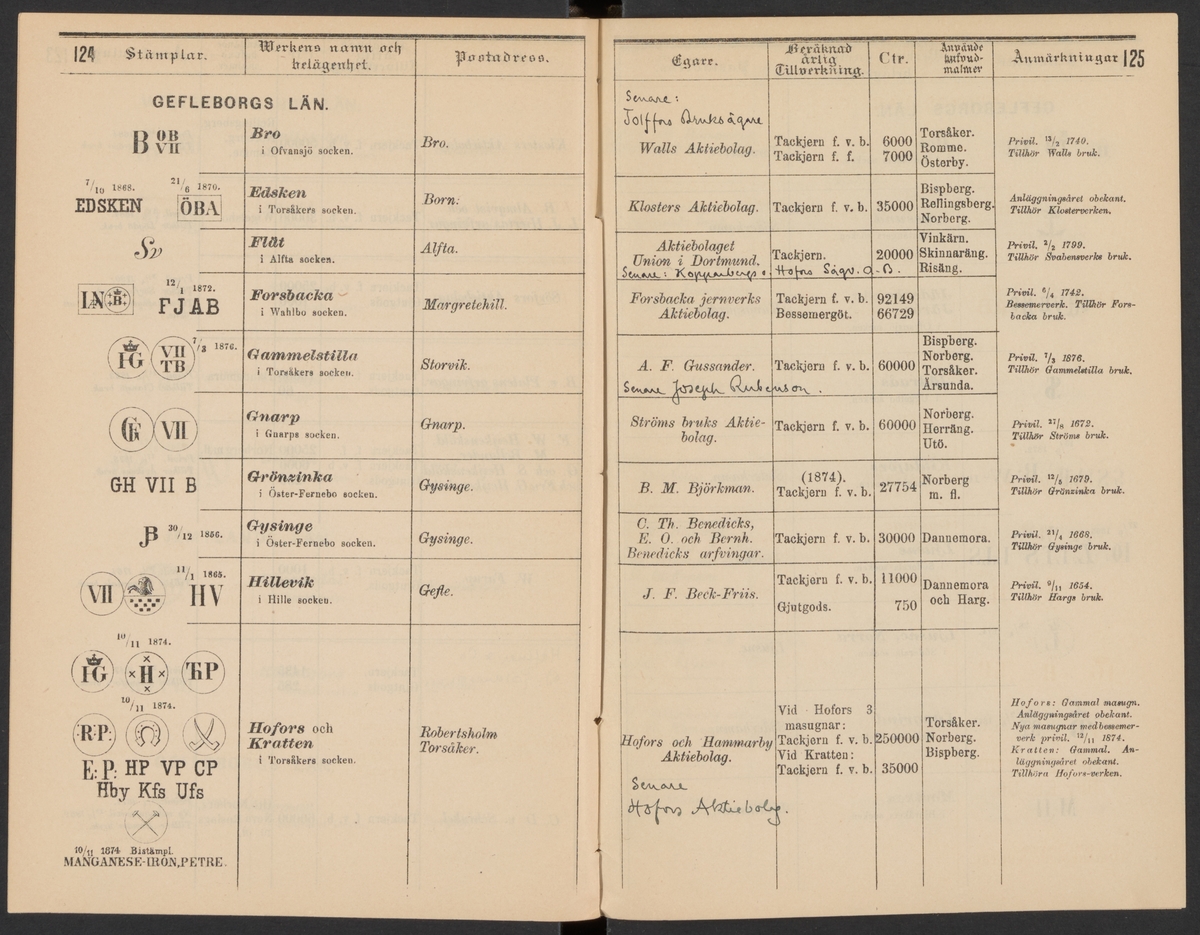 124 Stämplar. Werkens namn och belägenhet. Postadress.
GEFLEBORGS LÄN.
B OB VII
Bro
i Ofvansjö socken.
Bro.
7/10 1868. 21/6 1870.
EDSKEN ÖBA
Edsken
i Torsåkers socken.
Born.
Sv
Flåt
i Alfta socken.
Alfta.
12/1 1872.
LN B FJAB
Forsbacka
i Wahlbo socken.
Margretehill.
7/3 1876.
FG VII TB
Gammelstilla
i Torsåkers socken.
Storvik.
VII
Gnarp
i Gnarps socken.
Gnarp.
GH VII B
Grönsinka
i Öster-Fernebo socken.
Gysinge.
30/12 1856.
Gysinge
i Öster-Fernebo socken.
Gysinge.
11/1 1865.
VII HV
Hillevik
i Hille socken.
Gefle.
10/11 1874.
FG H P
10/11 1874.
:R:P:
E: P: HP VP CP
Hby Kfs Ufs
Hofors och
Kratten
i Torsåkers socken.
Robertsholm
Torsåker.
10/11 1674 Bistämpl.
MANGANESE-IRON, PETRE.
Egare. Beräknad årlig Tillverkning. Ctr. Använde hufvud-malmer Anmärkningar 125
Senare:
Tolffors Bruksägare
Walls Aktiebolag.
Tackjern f. v. b. 6000
Tackjern f. f. 7000
Torsåker.
Romme.
Österby.
Privil. 13/2 1740.
Tillhör Walls bruk.
Klosters Aktiebolag.
Tackjern f. v. b. 35000
Bispberg.
Rellingsberg.
Norberg.
Anläggningsåret obekant.
Tillhör Klosterverken.
Aktiebolaget
Union i Dortmund.
Tackjern. 20000
Vinkärn.
Skinnaräng.
Risäng.
Privil. 2/2 1799.
Tillhör Svabensverks bruk.
Senare: Kopparbergs o. Hofors Sågv. A.-B.
Forsbacka jernverks
Aktiebolag.
Tackjern f. v. b. 92149
Bessemergöt. 66729
Privil. 6/4 1742.
Bessemerverk. Tillhör Fors-
backa bruk.
A. F. Gussander.
Tackjern f. v. b. 60000
Bispberg.
Norberg.
Torsåker.
Årsunda.
Privil. 7/3 1876.
Tillhör Gammelstilla bruk.
Senare Joseph Rubenson.
Ströms bruks Aktie-
bolag.
Tackjern f. v. b. 60000
Norberg.
Herräng.
Utö.
Privil. 27/8 1672.
Tillhör Ströms bruk.
B. M. Björkman.
(1874).
Tackjern f. v. b. 27754
Norberg
m. fl.
Privil. 12/5 1679.
Tillhör Grönsinka bruk.
C. Th. Benedicks,
E. O. och Bernh.
Benedicks arfvingar.
Tackjern f. v. b. 30000
Dannemora.
Privil. 21/4 1668.
Tillhör Gysinge bruk.
J. F. Beck-Friis.
Tackjern f. v. b. 11000
Gjutgods. 750
Dannemora
och Harg.
Privil. 9/11 1654.
Tillhör Hargs bruk.
Hofors och Hammarby
Aktiebolag.
Vid Hofors 3
masugnar:
Tackjern f. v. b. 250000
Vid Kratten:
Tackjern f. v. b. 35000
Torsåker.
Norberg.
Bispberg.
Hofors: Gammal masugn.
Anläggningsåret obekant.
Nya masugnar med bessemer-
verk privil. 12/11 1874.
Kratten: Gammal. An-
läggningsåret obekant.
Tillhöra Hofors-verken.
Senare
Hofors Aktiebolag.